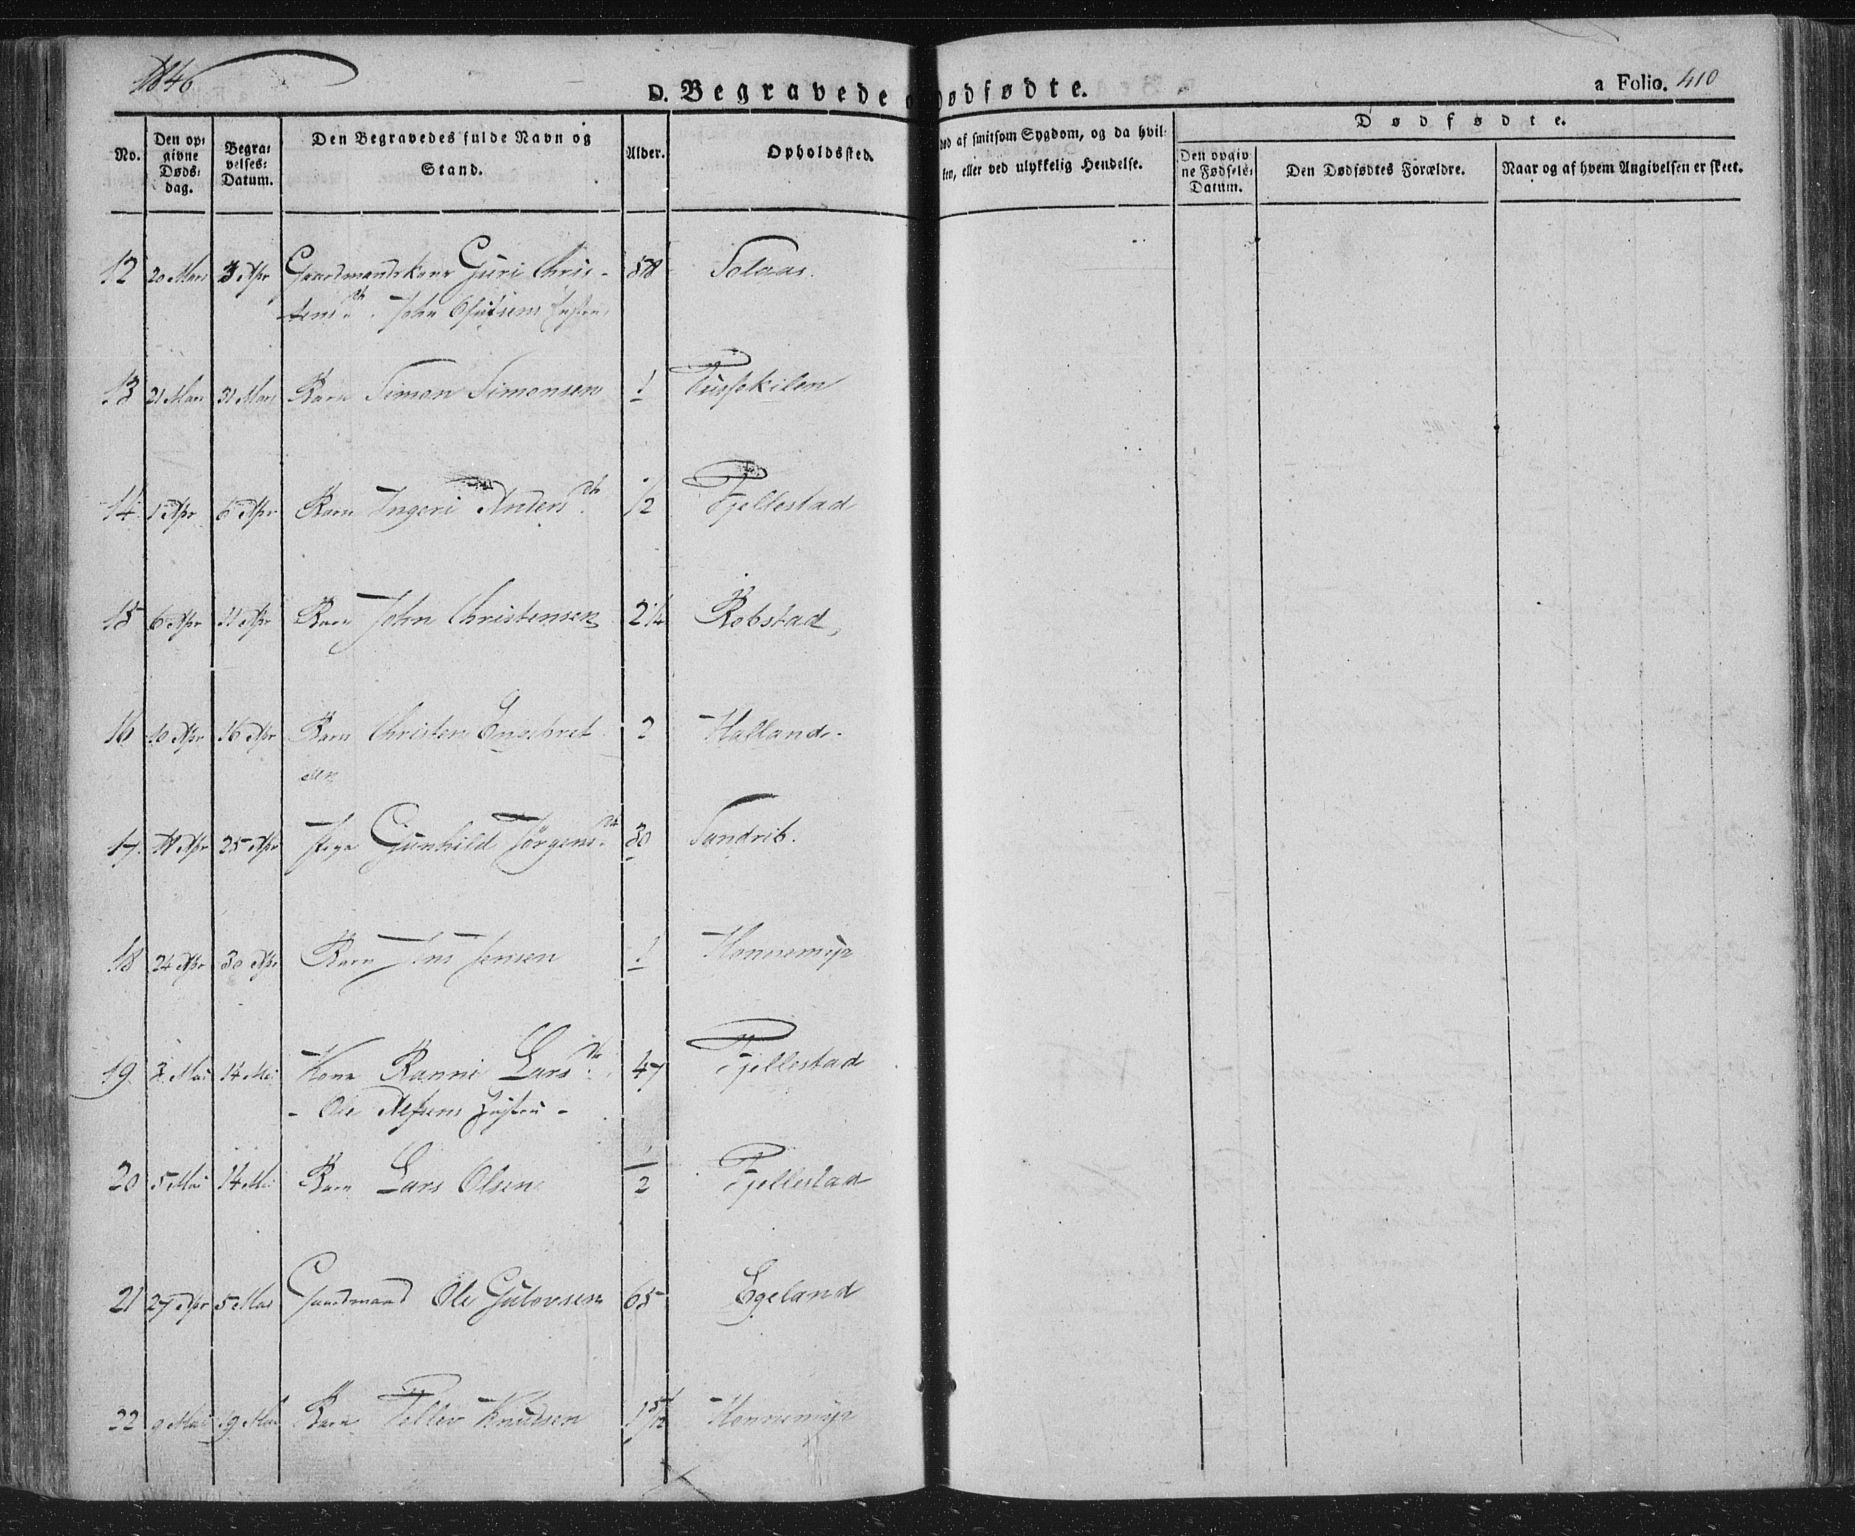 1846
D. Begravede o
Dødfødte.
a Folio. 410
No.
Den op-
givne
Døds-
dag.
Begra-
velses-
Datum.
Den Begravedes fulde Navn og
Stand.
Alder.
Opholdssted.
død af smitsom Sygdom, og da hvil-
ken, eller ved ulykkelig Hendelse.
Dødfødte.
Den opgiv-
ne Fødsels-
Datum.
Den Dødfødtes Forældre.
Naar og af hvem Angivelsen er skeet.
12 20 Mars 3 Apr Gaardmandskone Guri Chris- 58 Solaas.
tensdtr. John Hustru
13 21 Mars 31 Mars Barn Simon Simonsen 1
14 1 Apr 6 Apr Barn Ingeri Andersdtr. 1/2 Fjellestad
15 6 Apr 11 Apr Barn John Christensen 2 1/4 Robstad
16 10 Apr 16 Apr Barn Christen Engebret 2 Halland.
sen
17 11 Apr 25 Apr Pige Gunhild Jørgensdtr 30 Sundrib.
18 24 Apr 30 Apr Barn Jens Jensen 1 Honnemyr
19 3 Mai 14 Mai Kone Ranni Larsdtr. 47 Fjellestad
- Ole Hustru -
20 5 Mai 14 Mai Barn Lars Olsen 1/2 Fjellestad
21 27 Apr 5 Mai Gaardmand Ole Gulovsen 65 Egeland
22 9 Mai 19 Mai Barn Tellev Knudsen 1 5/12 Honnemyr